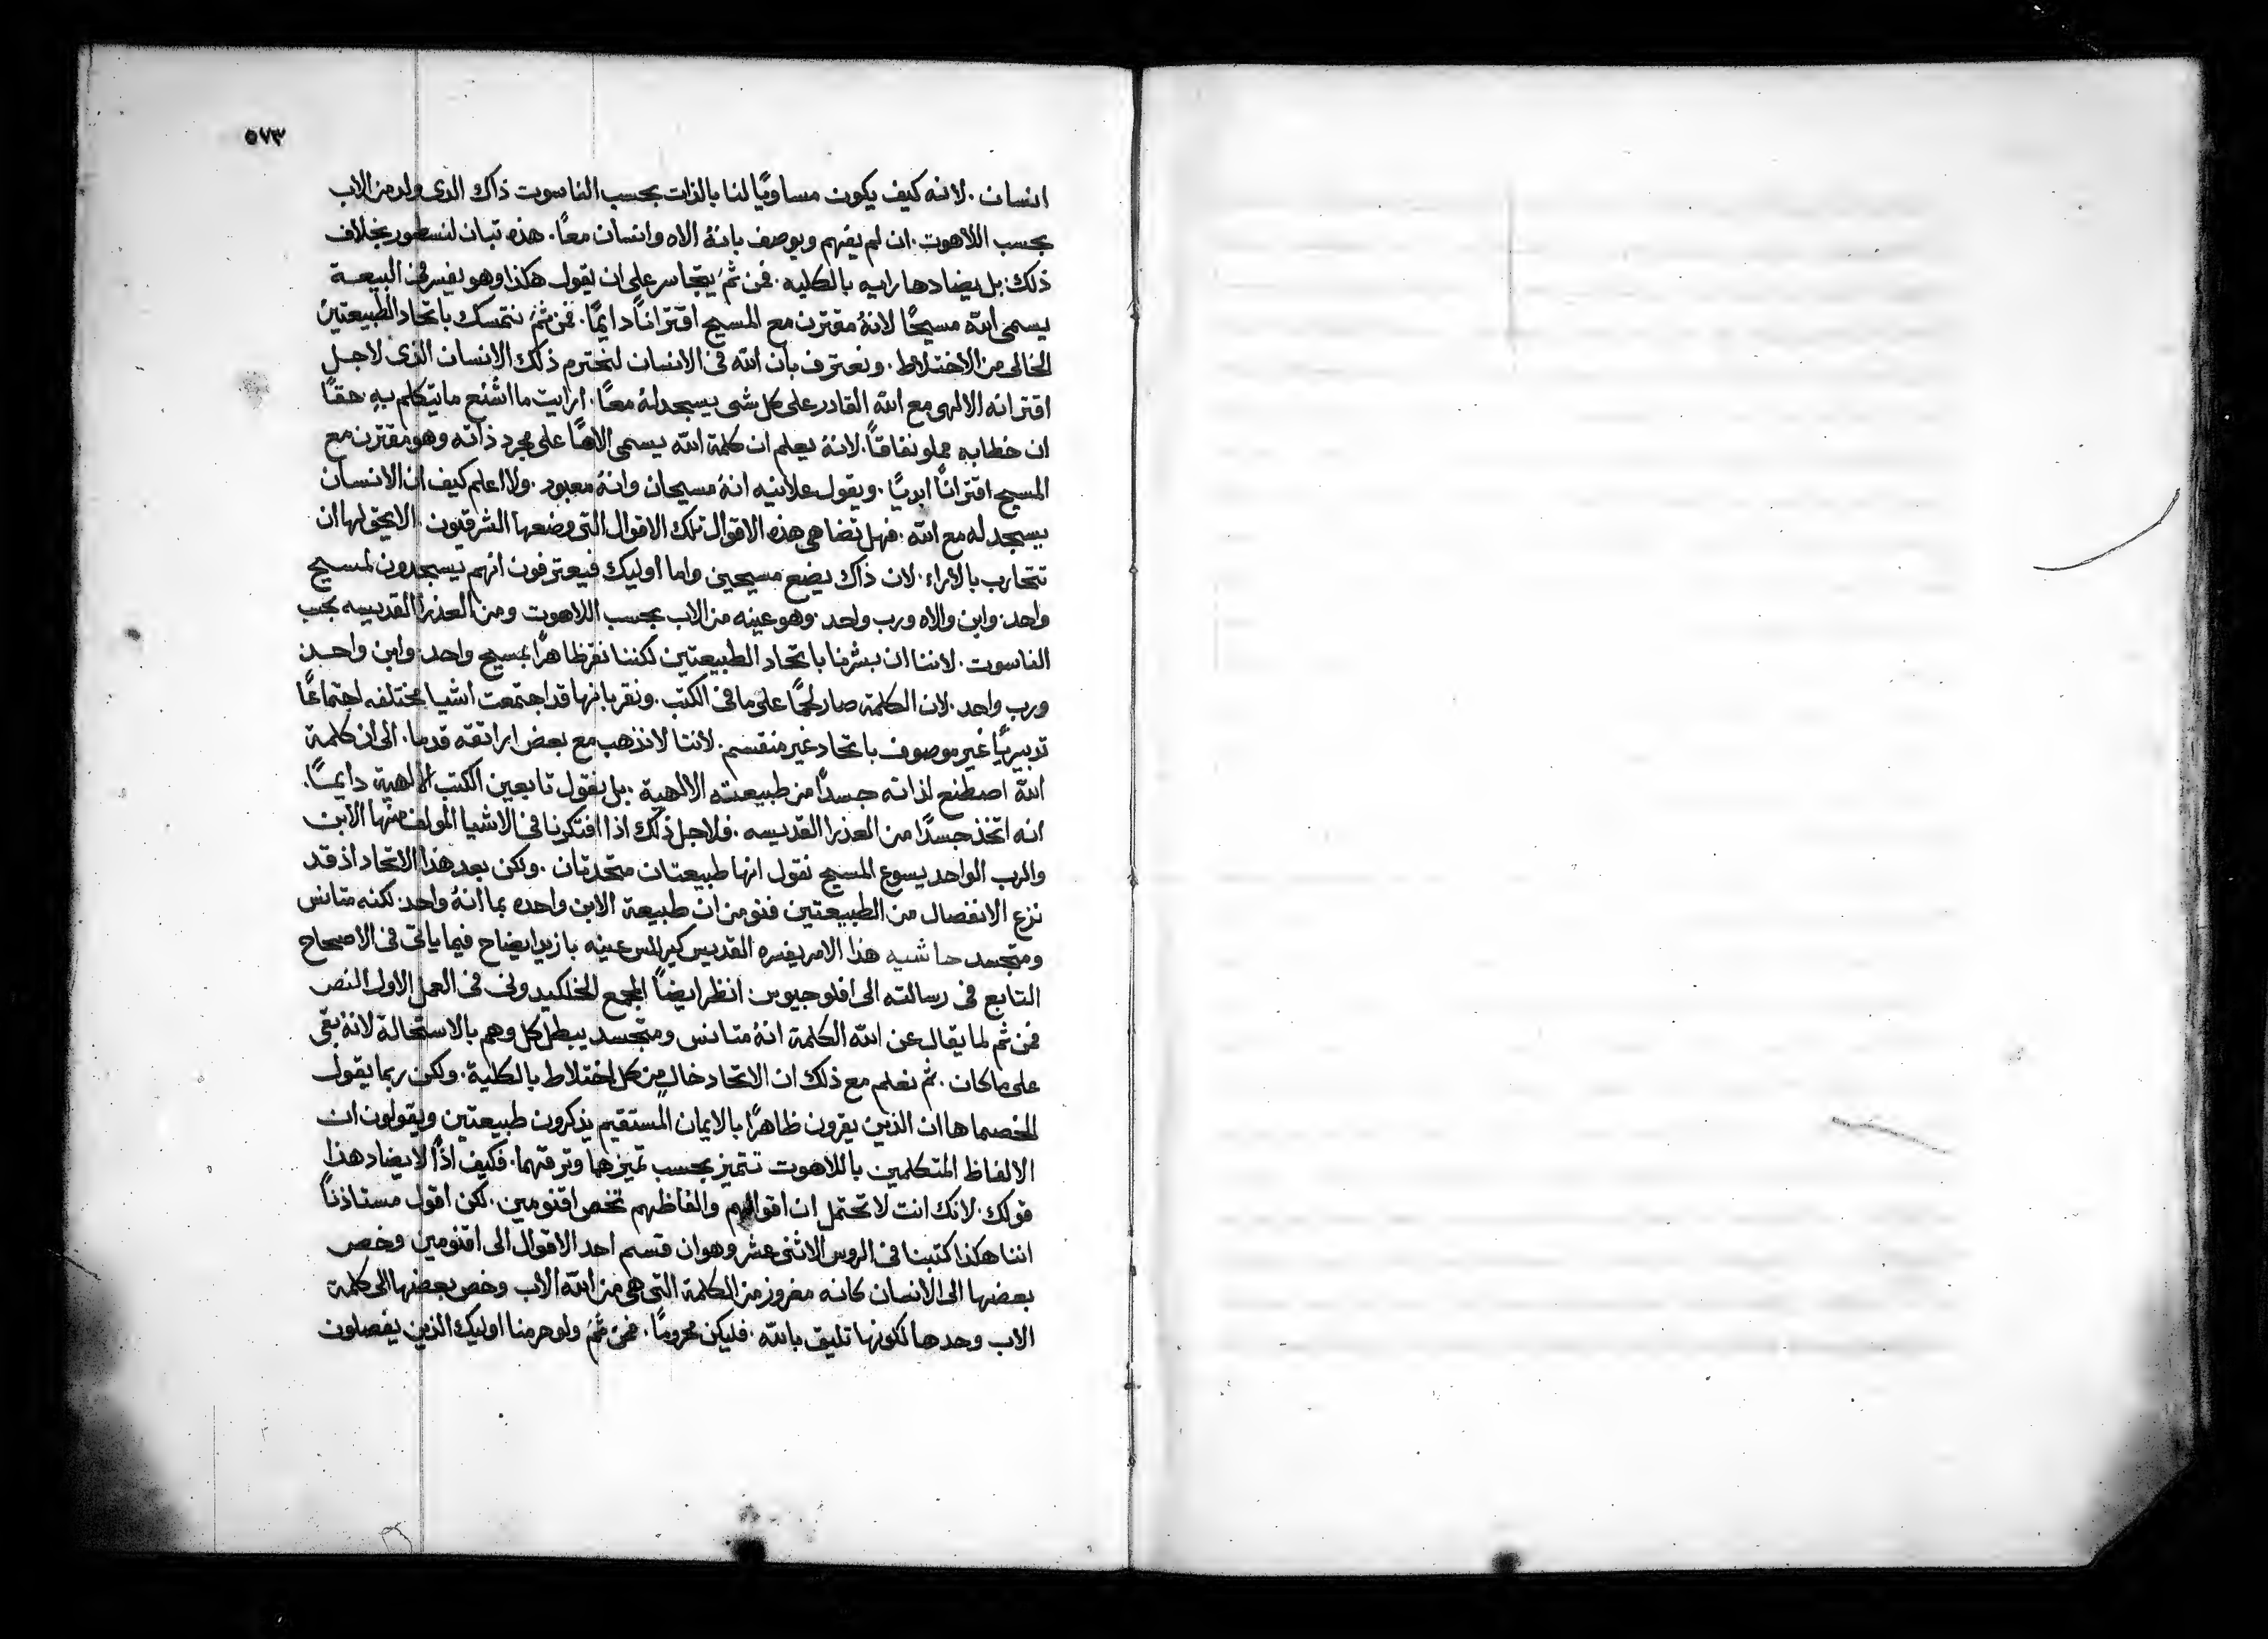 ٥٧٣
انسان. لانه كيف يكون مساويًا لنا بالذات بحسب الناسوت ذاك الذى ولد من الاب
بحسب اللاهوت. ان لم يفهم ويوصف بانهُ الاه وانسان معًا. هذه تبان لنسطور بخلاف
ذلك. بل يضادها رايه بالكليه. فمن ثمَ يتجاسر على ان يقول هكذا وهو يفسر فى البيعة
يسمى الله مسيحًا لانهُ مقترن مع المسيح اقترانًا دايمًا. فمن ثمَ نتمسك باتحاد الطبيعتين
الخالى من الاختلاط. ونعترف بان الله فى الانسان لنحترم ذلك الانسان الذى لاجل
اقترانه الالهى مع الله القادر على كل شى يسجد لهُ معًا. ارايت ما اشنع ما يتكلم به. حقًا
ان خطابه مملو نفاقًا. لانهُ يعلم ان كلمة الله يسمى الاهًا على مجرد ذاته وهو مقترن مع
المسيح اقترانًا ابديًا. ويقول علانيه انهُ مسيحان وانهُ معبود. ولا اعلم كيف ان الانسان
يسجد له مع الله. فهل تضاهى هذه الاقوال تلك الاقوال التى وضعها الشرقيون. الا يحق لها ان
تتحارب بالاراء. لان ذاك يضع مسيحين واما اوليك فيعترفون انهم يسجدون لمسيح
واحد. وابن والاه ورب واحد. وهو عينه من الاب بحسب اللاهوت ومن العذرا القديسه بحسب
الناسوت. لاننا ان بشرنا باتحاد الطبيعتين لكننا نقر ظاهرًا بمسيح واحد. وابن واحد.
ورب واحد. لان الكلمة صار لحمًا على ما فى الكتب. ونقر بانها قد اجتمعت اشيا مختلفه اجتماعًا
تدبيريًا غير موصوف باتحاد غير منقسم. لاننا لا نذهب مع بعض اراتقه قدما. الى ان كلمة
الله اصطنع لذاته جسدًا من طبيعته الالهية. بل نقول تابعين الكتب الالهية دايمًا.
انه اتخذ جسدًا من العذرا القديسه. فلاجل ذلك اذا افتكرنا فى الاشيا المولف منها الابن
والرب الواحد يسوع المسيح نقول انها طبيعتان متحدتان. ولكن بعد هذا الاتحاد اذ قد
نزع الانفصال من الطبيعتين فنومن ان طبيعة الابن واحده بما انهُ واحد. لكنه متانس
ومتجسد حاشيه هذا الامر يفسره القديس كيرللس عينه بازيد ايضاح فيما ياتى فى الاصحاح
التابع فى رسالته الى افلوجيوس. انظر ايضًا المجمع الخلكيدونى فى العمل الاول النص
فمن ثم لما يقال عن الله الكلمة انهُ متانس ومتجسد يبطل كل وهم بالاستحالة لانهُ بقى
على ما كان. ثم نعلم مع ذلك ان الاتحاد خالٍ من كل اختلاط بالكلية. ولكن ربما يقول
الخصما ها ان الذين يقرون ظاهرًا بالايمان المستقيم يذكرون طبيعتين ويقولون ان
الالفاظ المتكلمين باللاهوت تتميز بحسب تميزهما وترقتهما. فكيف اذًا لا يضاد هذا
قولك. لانك انت لا تحتمل ان اقوالهم والفاظهم تخص اقنومين. لكن اقول مستاذنًا
اننا هكذا كتبنا فى الروس الاثنى عشر وهو ان قسم احد الاقوال الى اقنومين وخص
بعضها الى الانسان كانه مفروز من الكلمة التى هى من الله الاب وخص بعضها الى كلمة
الاب وحدها لكونها تليق بالله. فليكن محرومًا. فمن ثمَ ولو حرمنا اوليك الذين يفصلون